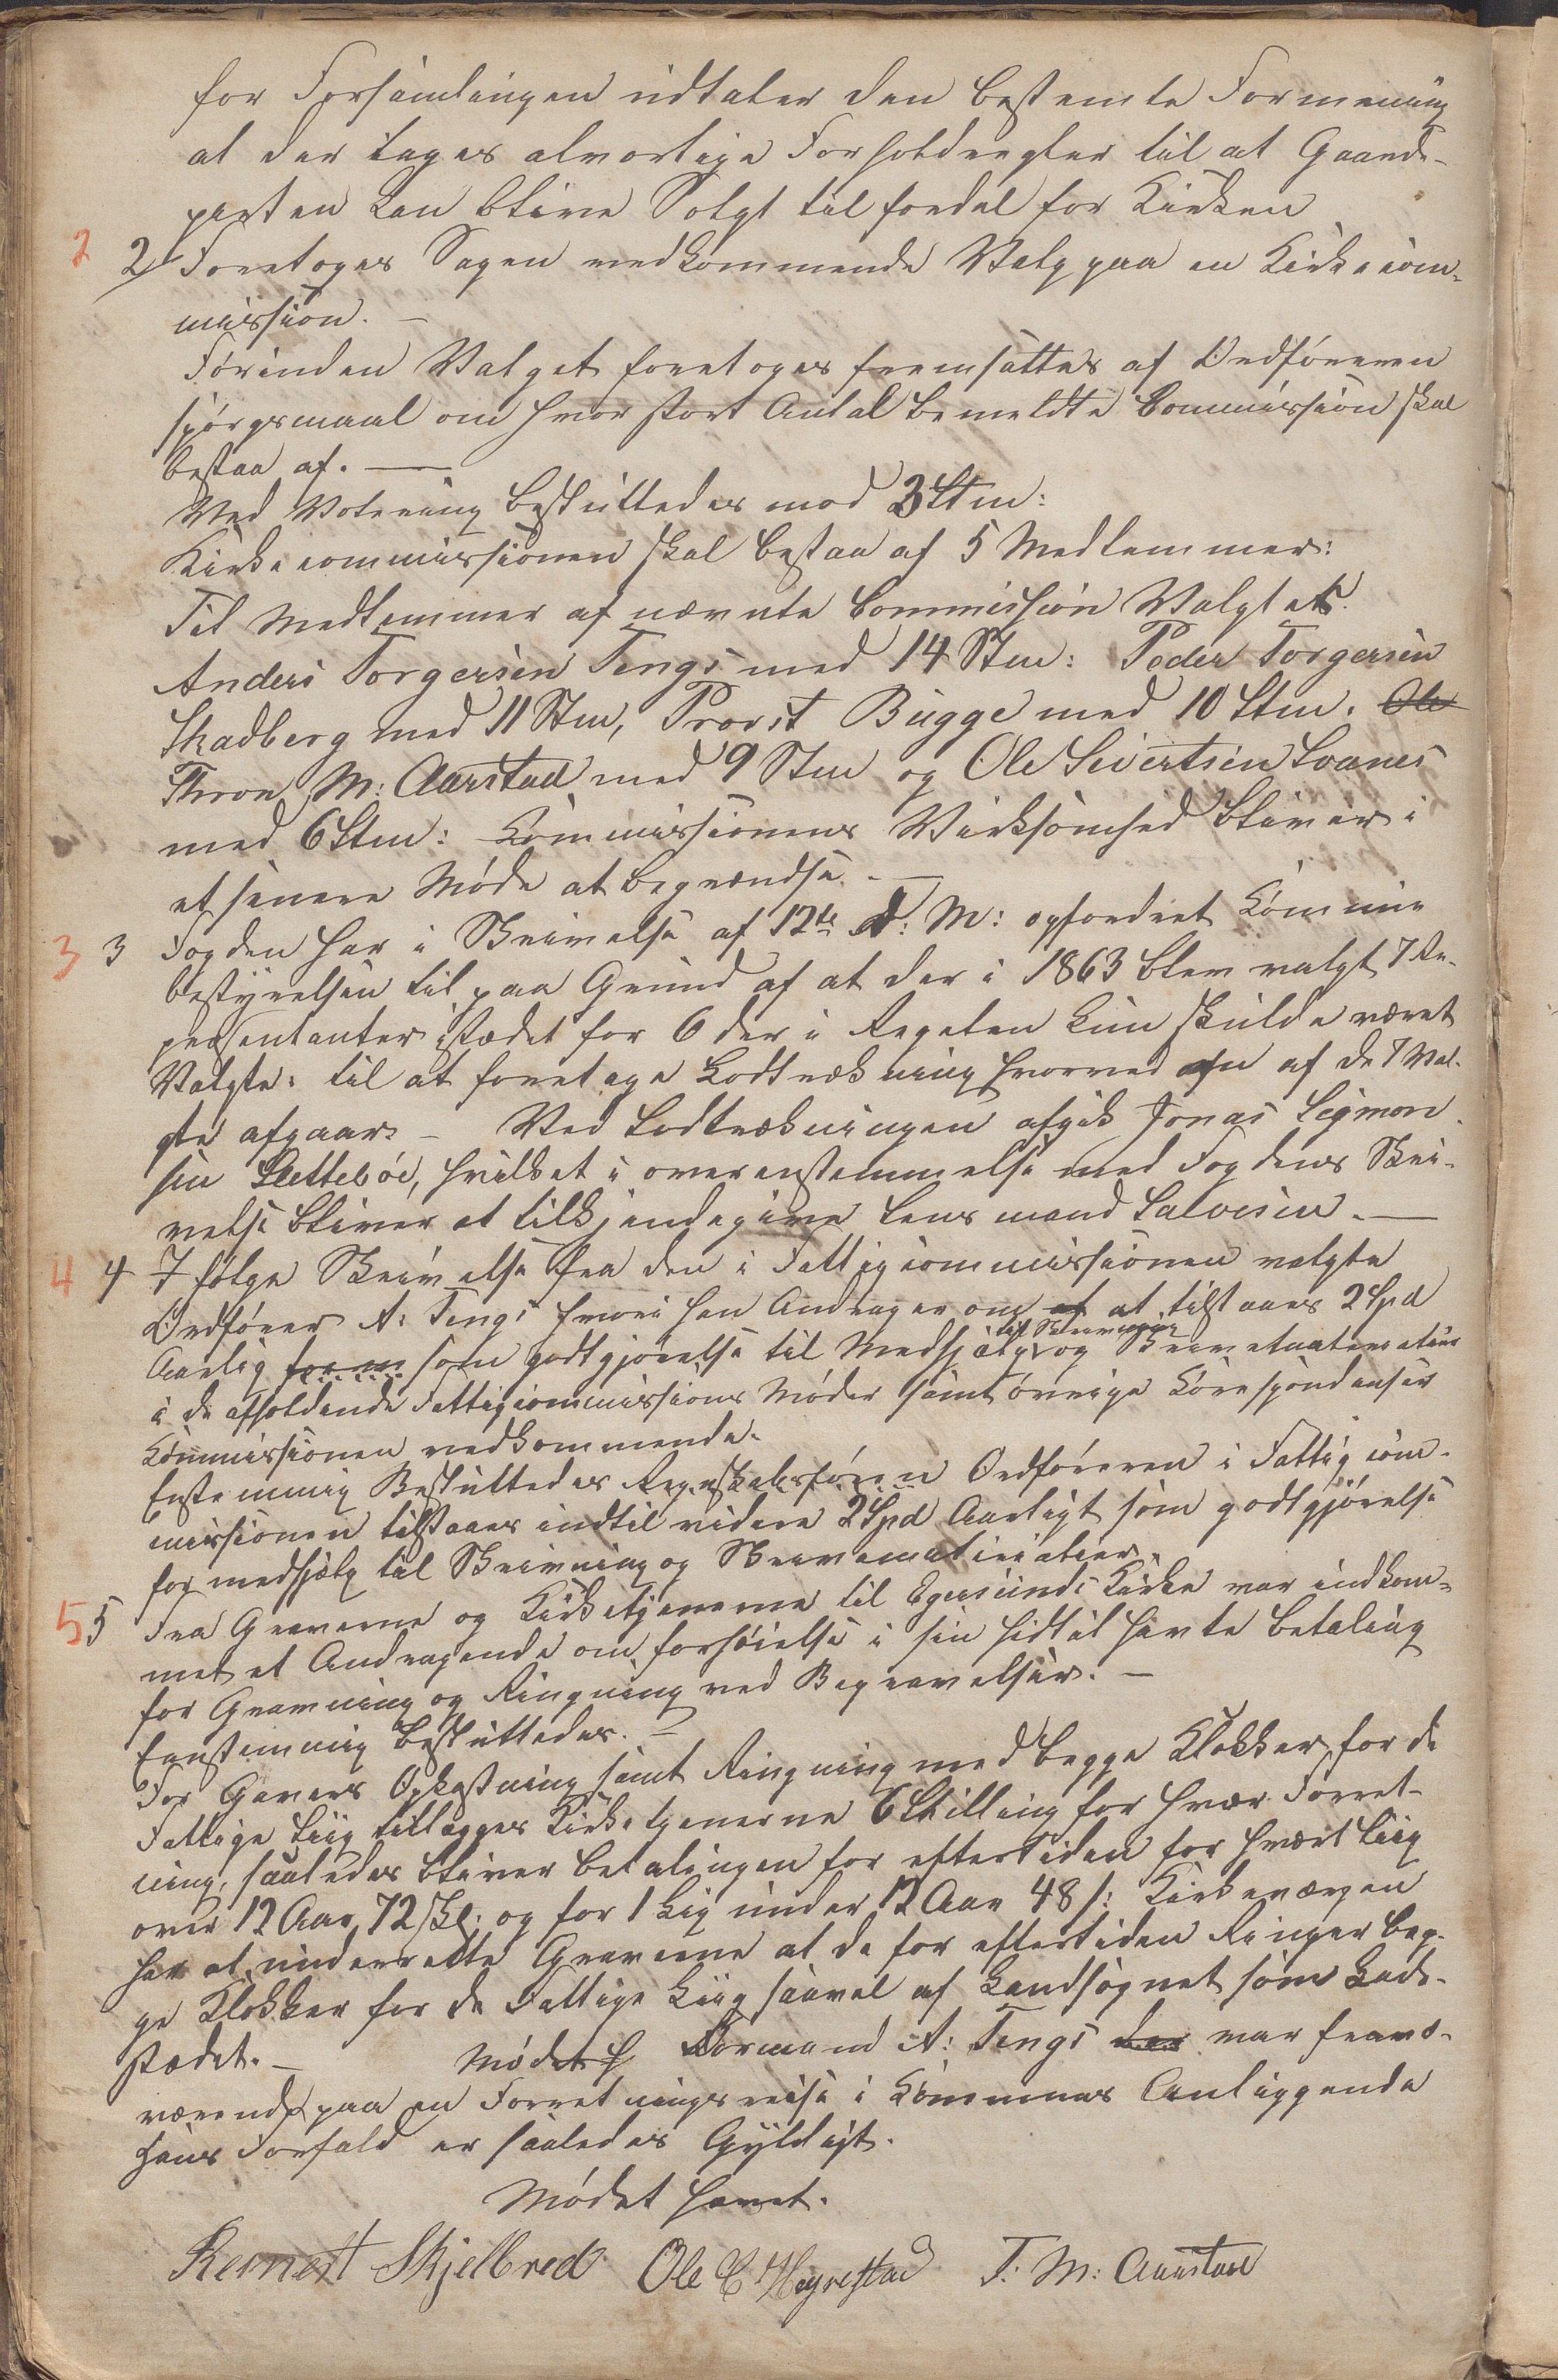 for Forsamlingen udtaler den bestemte Formening
at der tages alvorlige Forholdregler til at Gaard-
parten kan blive Solgt til fordel for Kirken
2 2/ Foretoges Sagen vedkommende Valg paa en Kirkecom-
mission. —
Førinden Valget foretoges fremsattes af Ordføreren
spørgsmaal om hvor stort Antal bemeldte Commission skal
bestaa af. —
Ved Votering besluttedes mod 3 Stm:
Kirkecommissionen skal bestaa af 5 Medlemmer:
Til Medlemmer af nævnte Commission Valgtes.
Anders Torgersen Tengs med 14 Stm: Peder Torgersen
Skadberg med 11 Stm, Provst Bugge med 10 Stm. Ole
Thron M: Aarstad med 9 Stm og Ole Sivertsen Svanes
med 6 Stm: Commissionens Virksomhed bliver i
et senere Møde at begrændse. —
3 3 Fogden har i Skrivelse af 12te d: M: opfordret Commune
bestyrelsen til paa Grund af at der i 1863 blev valgt 7 Re-
presentanter istædet for 6 der i Regelen kun skulde været
Valgte: til at foretage Lodtrækning hvorved en af de 7 Val-
gte afgaar. — Ved Lodtrækningen afgik Jonas Sigmon
sen Slettebøe, hvilket i overenstemmelse med Fogdens Skri-
velse bliver at tilkjendegive Lensmand Salvesen. —
4 4 Ifølge Skrivelse fra den i Fattigcommissionen valgte
Ordfører A: Tengs hvori han Andrager om at at tilstaaes 2 Spd
Aarlig som godtgjørelse til Medhjælp til Skrivning og Skrivematerialier
i de afholdende Fattigcommissions Møder samt øvrige Corespondanser
Commissionen vedkommende.
Enstemmig Besluttedes Regnskabsføren Ordføreren i Fattigcom-
missionen tilstaaes indtil videre 2 Spd Aarligt som godtgjørelse
for medhjælp til Skrivning og Skrivematerialier.
5 5 Fra Graverne og Kirketjenerne til Egersunds Kirke var indkom-
met et Andragende om forhøielse i sin hidtil havte betaling
for Gravning og Ringning ved Begravelser. —
Eenstemmig besluttedes. —
For Gravers Opkastning samt Ringning med begge Klokker for de
Fattige Liig tillægges Kirketjenerne 6 Skilling for hver Forret-
ning, saaledes bliver betalingen for eftertiden for hvert Liig
over 12 Aar, 72 Skl. og for 1 Lig under 12 Aar 48 s: Kirkeværgen
har at underrette Graverne at de for eftertiden Ringer beg-
ge Klokker for de Fattige Liig saavel af Landsognet som Lade-
stædet. — Mødet h Formand A: Tengs der var fravæ-
værende paa en Forretningsreise i Kommunes Anliggende
hans Forfald er saaledes Gyldigt.
Mødet hævet.
Reinert Skjelbred Ole C Hegrestad T. M: Aarstad